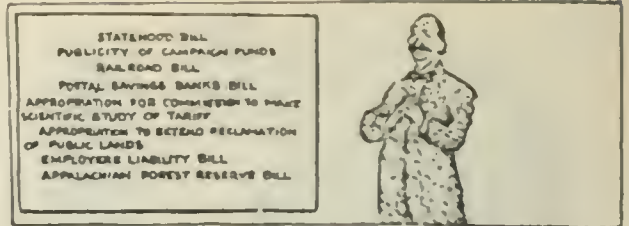 STATEHOOD BILL
PUBLICITY OF CAMPAIGN FUNDS
RAILROAD BILL
POSTAL SAVINGS BANKS BILL
APPROPRIATION FOR COMMISSION TO MAKE
SCIENTIFIC STUDY OF TARIFF
APPROPRIATION TO EXTEND RECLAMATION
OF PUBLIC LANDS
EMPLOYERS LIABILITY BILL
APPALACHIAN FOREST RESERVE BILL